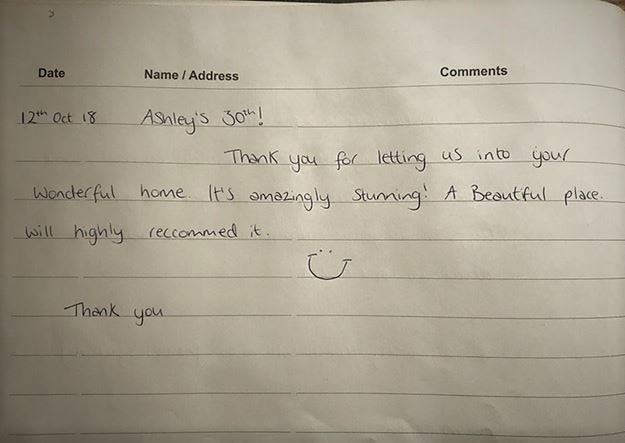 Date Name / Address Comments
12th Oct 18 Ashley's 30th!
Thank you for letting us into your
Wonderful home. It's amazingly Stunning! A Beautiful place.
Will highly reccommed it.
Thank you